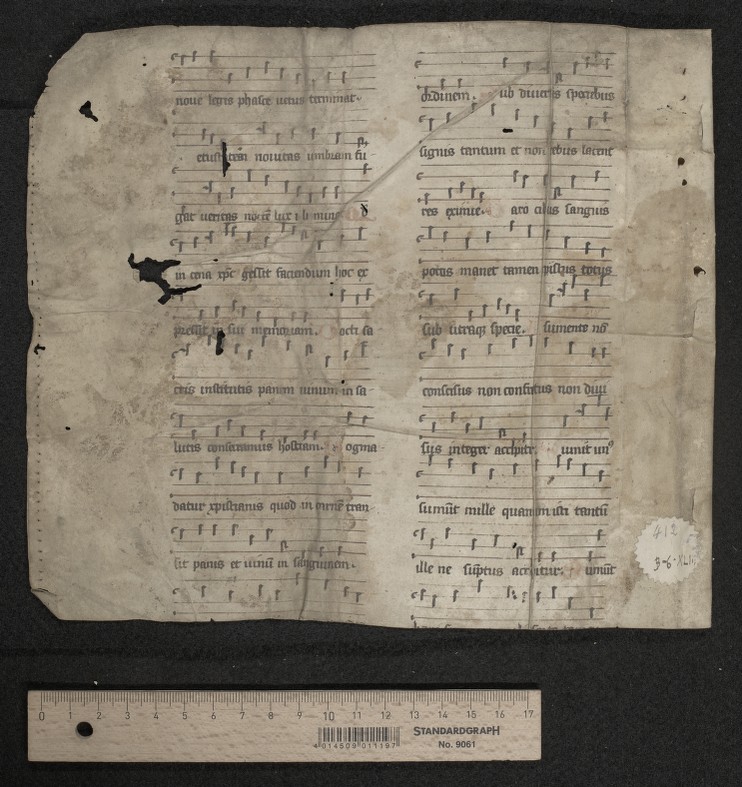 noue legis phase uetus terminat.
etustatem nouitas umbram fu
gat ueritas noctē lux
in cena xp̄c gessit faciendum hoc ex
pressit in sui memoriam. octi sa
cris institutis panem uinum in sa
lutis consecramus hostiam. ogma
datur xpistianis quod in carnē tran
sit panis et uinū in sanguinem.
ordinem. ub diuersis speciebus
signis tantum et non rebus latent
res eximie. aro cibus sanguis
potus manet tamen xpistus totus
sub utraqꝫ specie. sumente nō
concisus non confractus non diui
sus integer accipitur. umit unꝰ
sumūt mille quantum isti tantū
ille ne sūptus accipitur. umūt
412
3-6-XLI
0 1 2 3 4 5 6 7 8 9 10 11 12 13 14 15 16 17
4 014509 011197
STANDARDGRAPH
No. 9061